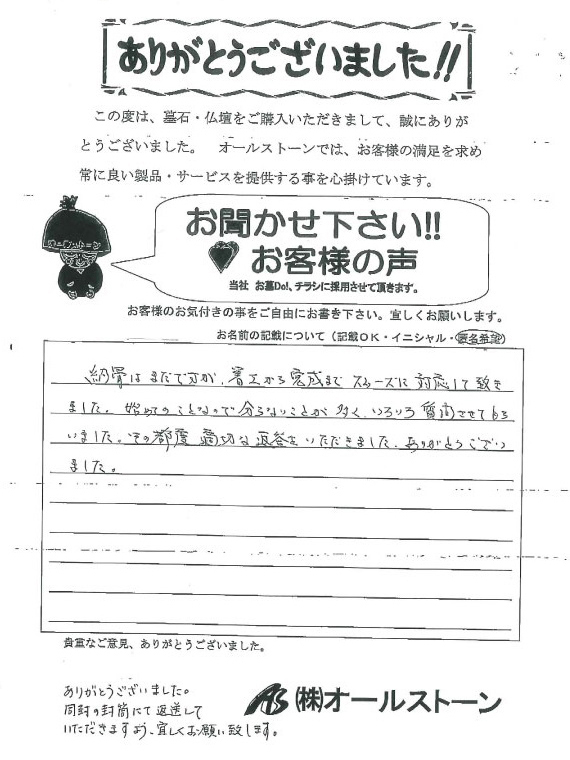 ありがとうございました!!
この度は、墓石・仏壇をご購入いただきまして、誠にありが
とうございました。 オールストーンでは、お客様の満足を求め
常に良い製品・サービスを提供する事を心掛けています。
オールストーン
お聞かせ下さい!!
お客様の声
当社 お墓Do!、チラシに採用させて頂きます。
お客様のお気付きの事をご自由にお書き下さい。宜しくお願いします。
お名前の記載について（記載OK・イニシャル・匿名希望）
納骨はまだですが、着工から完成までスムーズに対応して頂き
ました。始めてのことなので分らないことが多く、いろいろ質問させてもら
いました。その都度適切な返答をいただきました。ありがとうござい
ました。
貴重なご意見、ありがとうございました。
ありがとうございました。
同封の封筒にて返送して
いただきますよう、宜しくお願い致します。
AS (株)オールストーン